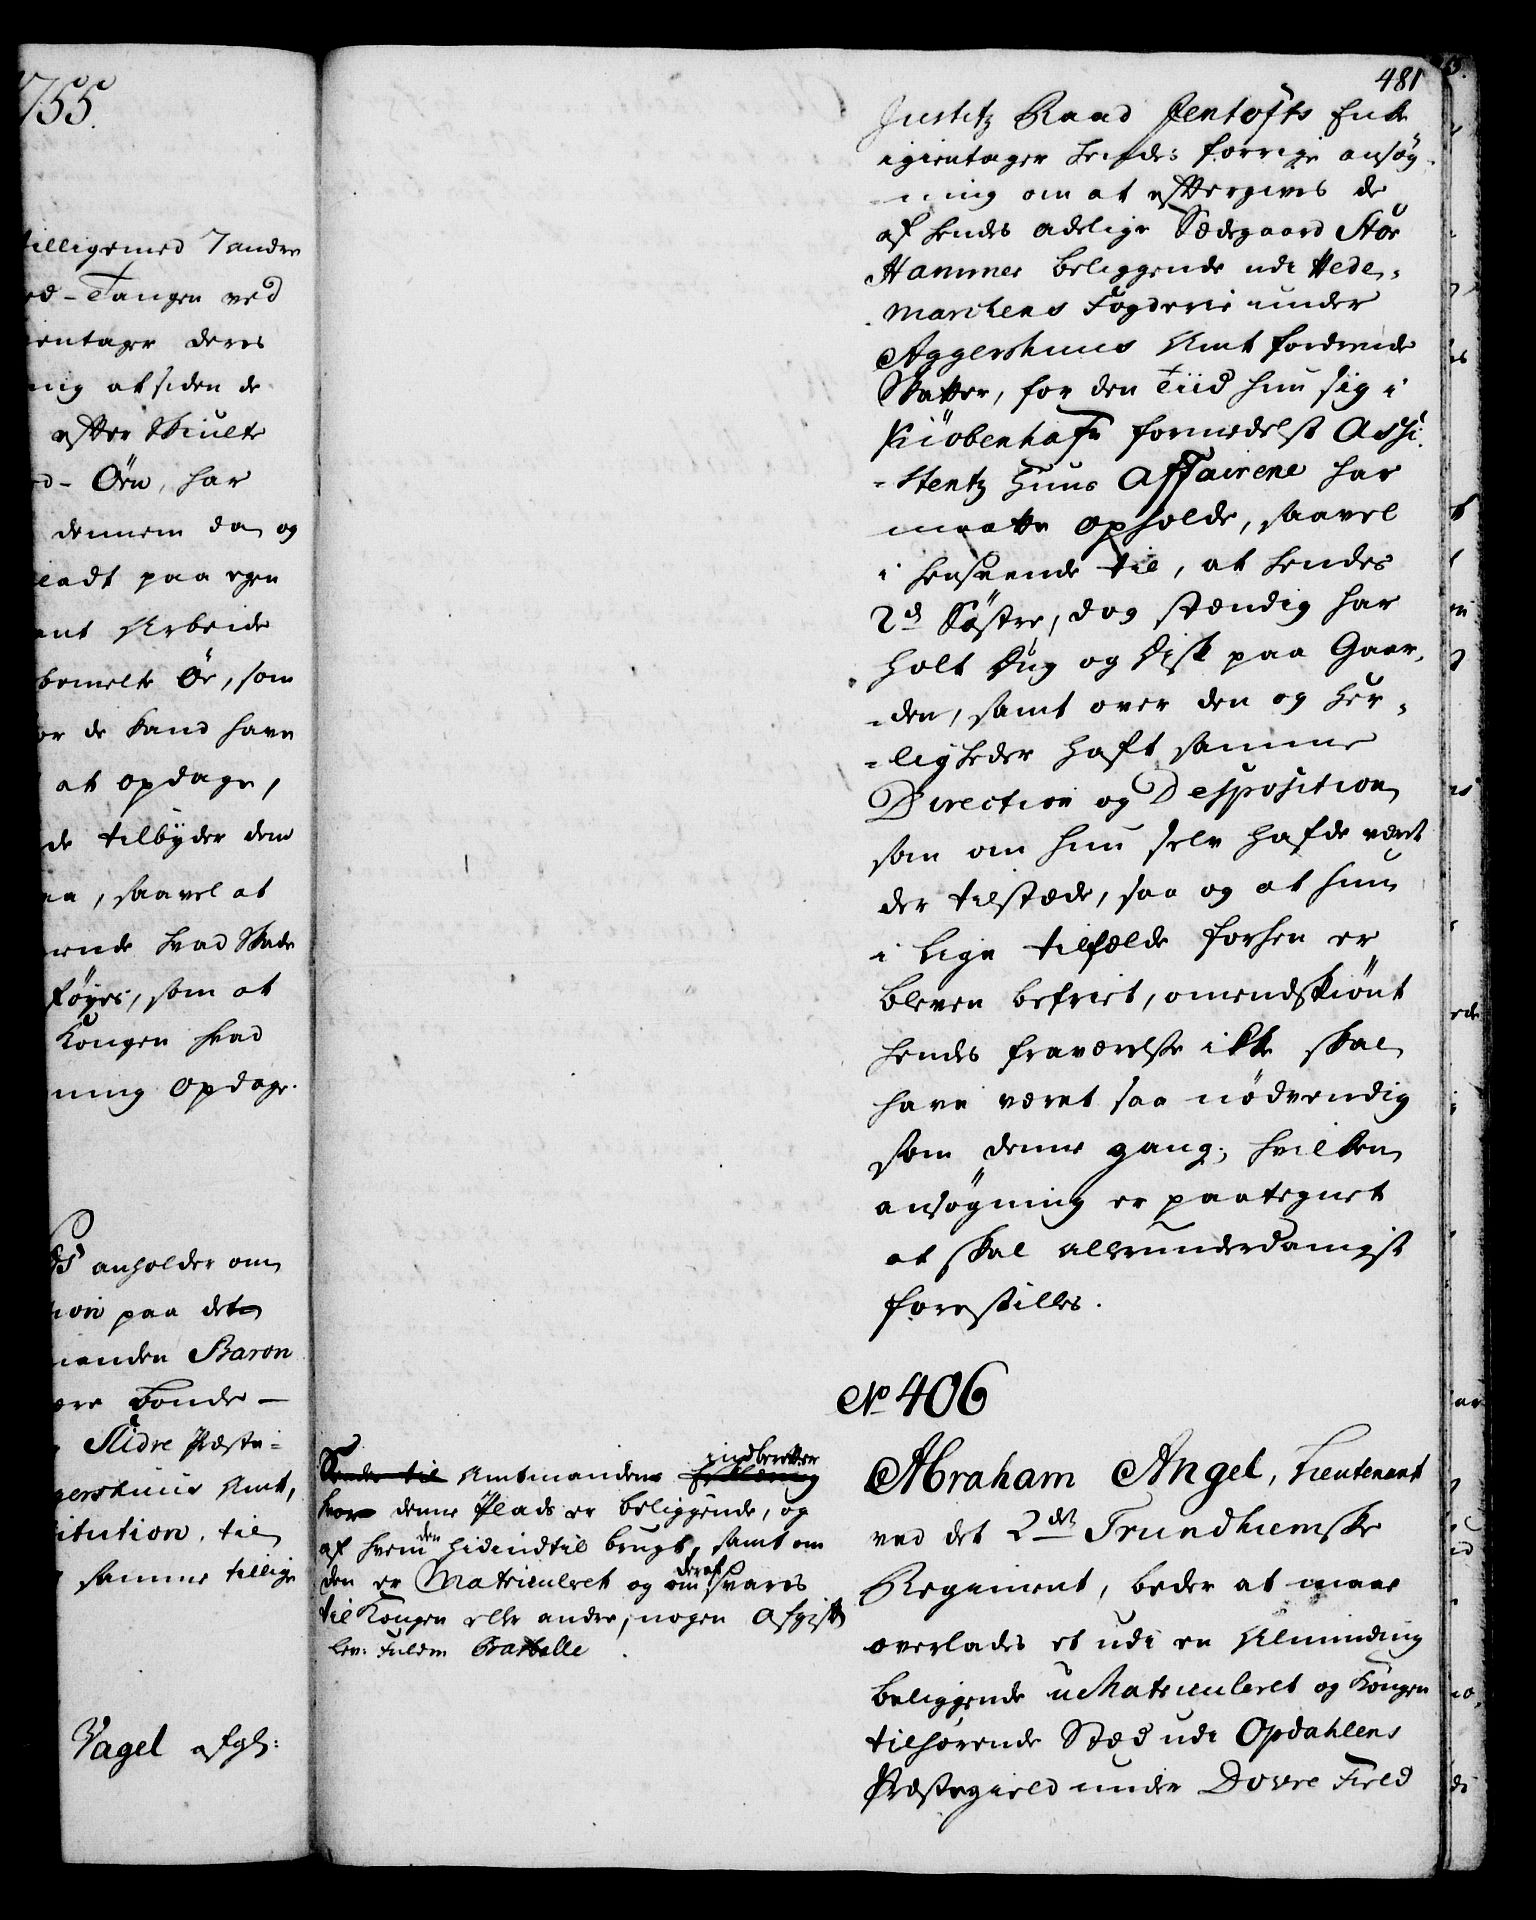 1755.
tilligemed 7 andre
ed-Tangen ved
ientager deres
ing at siden de
efter Skiulte
ed- Örn, har
dennem da og
ladt paa egen
ent Arbeide
bemelte Öe, som
or de kand have
at opdage,
de tilbyder dem
aa, saavel at
ende hvad Skade
föyes, som at
Kongen hvad
ning opdage.
anholder om
ion paa det
manden Baron
ere Bonde-
Slidre Præste=
gershuus Amt,
titution, til
samme tillige
Vagel afgl:
481
Justitz Raad Jentofts Enke
igientager hendes forrige ansøg-
-ning om at eftergives de
af hendes adelige Sædegaard Stor
Hammer beliggende udi Hede-
marchens Fogderie under
Aggershuus Amt forfaldne
Skatter, for den Tiid hun sig i
Kiöbenhafn formedelst Assi-
-stentz Huus Affairene har
maatte opholde, saavel
i henseende til, at hendes
2de Söstre, dog stændig har
holt Dug og Disk paa Gaar-
-den, samt over den og Her-
-ligheder haft samme
Direction og Desposition
som om hun selv hafde vært
der tilstæde, saa og at hun
i lige tilfælde forhen er
bleven befriet, omendskiönt
hendes fraværelse ikke skal
have været saa nödvendig
som denne gang; hvilken
ansögning er paategnet
at skal allerunderdanigst
forestilles.
No 406
Abraham Angel, Lieutenant
ved det 2det Trundhiemske
Regiment, beder at maae
overlades et udi en Alminding
beliggende uMatriculeret og Kongen
tilhörende Stæd udi Opdahlens
Præstegield under Dovre Field
Sendes til Amtmandens Erklæring indberetter
hvor denne Plads er beliggende, og
af hvem den hidindtil brugt, samt om
den er Matriculeret og om deraf svares
til Kongen eller andre, nogen Afgift
lev: Fuldm